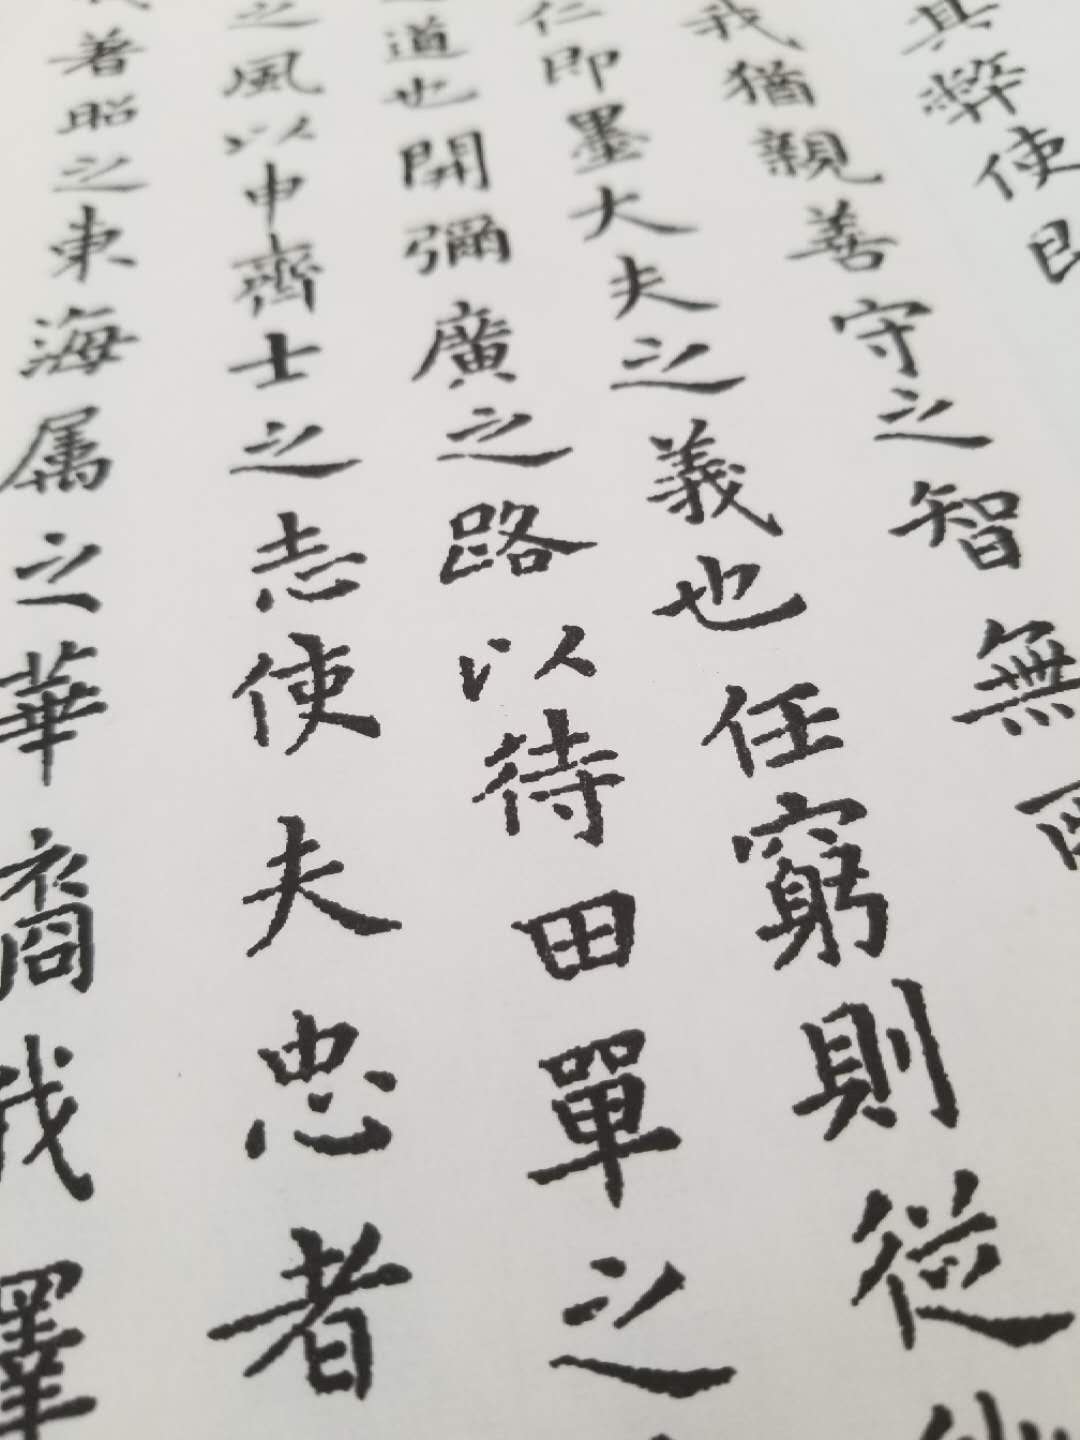 其弊使
我猶親善守之智無
仁即墨大夫之義也任窮則從
道也開彌廣之路以待田單之
之風以申齊士之志使夫忠者
著昭之東海属之華裔我澤